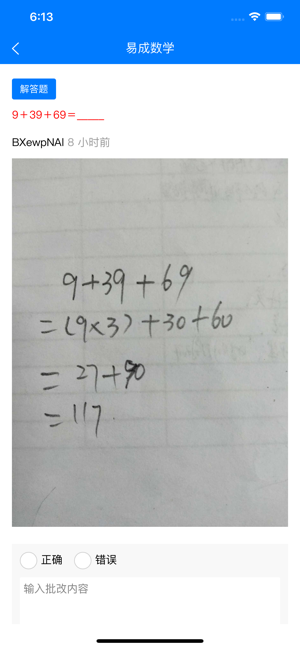 6:13
易成数学
解答题
9+39+69=_____
BXewpNAI 8 小时前
9+39+69
=(9×3)+30+60
=27+90
=117.
正确 错误
输入批改内容